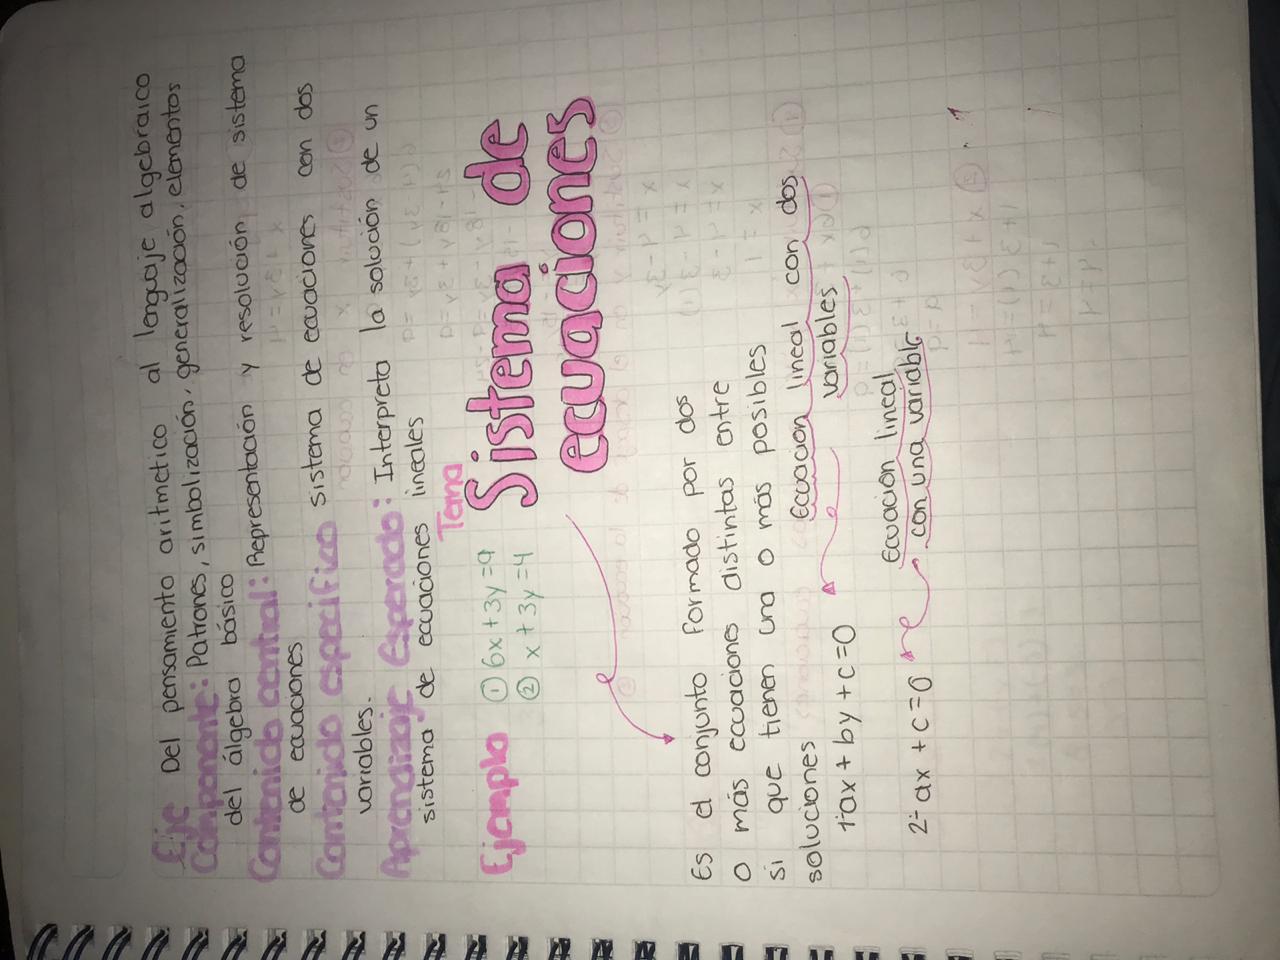 Eje Del pensamiento aritmetico al lenguaje algebraico
Componente: Patrones, simbolización, generalización, elementos
del álgebra básico
Contenido central: Representación y resolución de sistema
de ecuaciones
Contenido especifico sistema de ecuaciones con dos
variables.
Aprendizaje Esperado: Interpreta la solución de un
sistema de ecuaciones lineales
Tema
Ejemplo ① 6x+3y=9 Sistema de
② x+3y=4 ecuaciones
Es el conjunto formado por dos
o más ecuaciones distintas entre
si que tienen una o más posibles
soluciones
Ecuacion lineal con dos
variables
1- ax + by + c=0
Ecuacion lineal
con una variable
2- ax + c=0